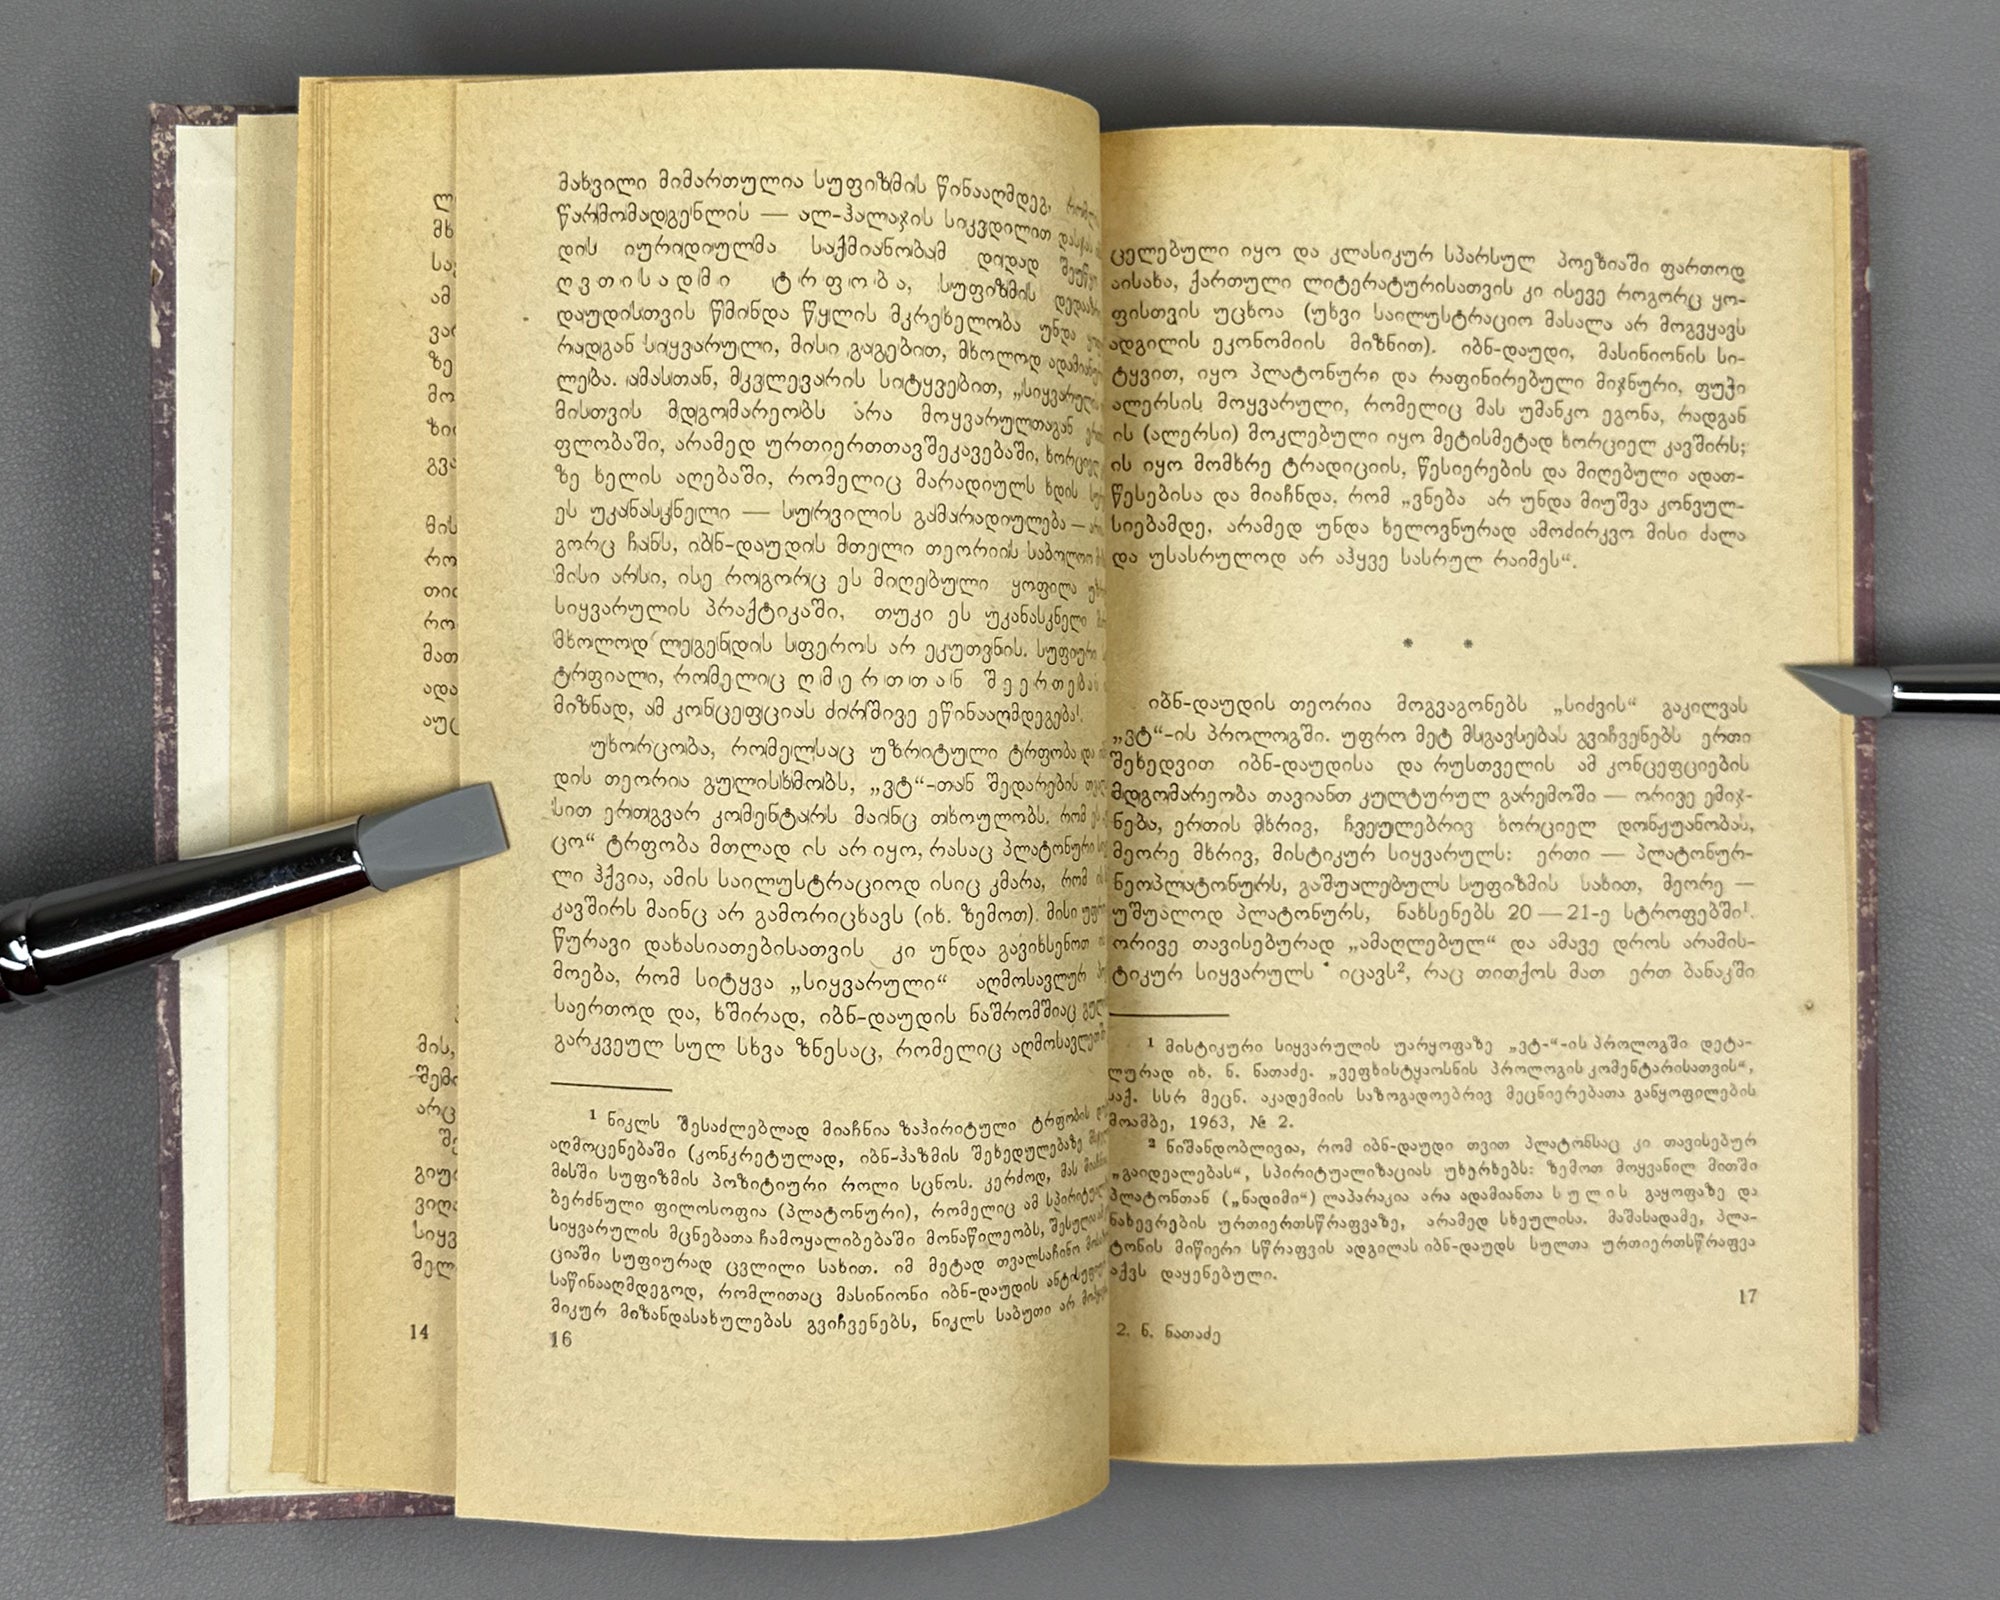 ლ
მხ
სა
ამ
ვა
ზე
მო
ზი
გვა
მის
რო
თი
რო
მათ
ადა
აუც
მის,
შემი
არც
შე
გიუ
ვიღ
სიყვ
მელ
14
მახვილი მიმართულია სუფიზმის წინააღმდეგ,
წარმომადგენლის — ალ-ჰალაჯის სიკვდილით
დის იურიდიულმა საქმიანობამ დიდად
ღვთისადმი ტრფობა, სუფიზმის
დაუდისთვის წმინდა წყლის მკრეხელობა უნდა
რადგან სიყვარული, მისი გაგებით, მხოლოდ
ლება. ამასთან, მკვლევარის სიტყვებით,
მისთვის მდგომარეობს არა მოყვარულთაგან
ფლობაში, არამედ ურთიერთთავშეკავებაში,
ზე ხელის აღებაში, რომელიც მარადიულს ხდის
ეს უკანასკნელი — სურვილის გამარადიულება —
გორც ჩანს, იბნ-დაუდის მთელი თეორიის
მისი არსი, ისე როგორც ეს მიღებული ყოფილა
სიყვარულის პრაქტიკაში, თუკი ეს უკანასკნელი
მხოლოდ ლეგენდის სფეროს არ ეკუთვნის. სუფიური
ტრფიალი, რომელიც ღმერთთან შეერთებას
მიზნად, ამ კონცეფციას ძირშივე ეწინააღმდეგება¹.
უხორცობა, რომელსაც უზრიტული ტრფობა და
დის თეორია გულისხმობს, „ვტ“-თან შედარების
სით ერთგვარ კომენტარს მაინც თხოულობს. რომ
ცო“ ტრფობა მთლად ის არ იყო, რასაც პლატონური
ლი ჰქვია, ამის საილუსტრაციოდ ისიც კმარა, რომ
კავშირს მაინც არ გამორიცხავს (იხ. ზემოთ). მისი
წურავი დახასიათებისათვის კი უნდა გავიხსენოთ
მოება, რომ სიტყვა „სიყვარული“ აღმოსავლურ
საერთოდ და, ხშირად, იბნ-დაუდის ნაშრომშიაც
გარკვეულ სულ სხვა ზნესაც, რომელიც
¹ ნიკლს შესაძლებლად მიაჩნია ზაჰირიტული ტრფობის
აღმოცენებაში (კონკრეტულად, იბნ-ჰაზმის შეხედულებაზე
მასში სუფიზმის პოზიტიური როლი სცნოს. კერძოდ, მას
ბერძნული ფილოსოფია (პლატონური), რომელიც ამ
სიყვარულის მცნებათა ჩამოყალიბებაში მონაწილეობს,
ციაში სუფიურად ცვლილი სახით. იმ მეტად თვალსაჩინო
საწინააღმდეგოდ, რომლითაც მასინიონი იბნ-დაუდის
მიკურ მიზანდასახულებას გვიჩვენებს, ნიკლს საბუთი არ
16
ცელებული იყო და კლასიკურ სპარსულ პოეზიაში ფართოდ
აისახა, ქართული ლიტერატურისათვის კი ისევე როგორც ყო-
ფისთვის უცხოა (უხვი საილუსტრაციო მასალა არ მოგვყავს
ადგილის ეკონომიის მიზნით). იბნ-დაუდი, მასინიონის სი-
ტყვით, იყო პლატონური და რაფინირებული მიჯნური, ფუჭი
ალერსის მოყვარული, რომელიც მას უმანკო ეგონა, რადგან
ის (ალერსი) მოკლებული იყო მეტისმეტად ხორციელ კავშირს;
ის იყო მომხრე ტრადიციის, წესიერების და მიღებული ადათ-
წესებისა და მიაჩნდა, რომ „ვნება არ უნდა მიუშვა კონვულ-
სიებამდე, არამედ უნდა ხელოვნურად ამოძირკვო მისი ძალა
და უსასრულოდ არ აჰყვე სასრულ რაიმეს“.
* *
იბნ-დაუდის თეორია მოგვაგონებს „სიძვის“ გაკილვას
„ვტ“-ის პროლოგში. უფრო მეტ მსგავსებას გვიჩვენებს ერთი
შეხედვით იბნ-დაუდისა და რუსთველის ამ კონცეფციების
მდგომარეობა თავიანთ კულტურულ გარემოში — ორივე ემიჯ-
ნება, ერთის მხრივ, ჩვეულებრივ ხორციელ დონჟუანობას,
მეორე მხრივ, მისტიკურ სიყვარულს: ერთი — პლატონურ-
ნეოპლატონურს, გაშუალებულს სუფიზმის სახით, მეორე —
უშუალოდ პლატონურს, ნახსენებს 20—21-ე სტროფებში¹.
ორივე თავისებურად „ამაღლებულ“ და ამავე დროს არამის-
ტიკურ სიყვარულს იცავს², რაც თითქოს მათ ერთ ბანაკში
¹ მისტიკური სიყვარულის უარყოფაზე „ვტ-“-ის პროლოგში დეტა-
ლურად იხ. ნ. ნათაძე. „ვეფხისტყაოსნის პროლოგის კომენტარისათვის“,
საქ. სსრ მეცნ. აკადემიის საზოგადოებრივ მეცნიერებათა განყოფილების
მოამბე, 1963, № 2.
² ნიშანდობლივია, რომ იბნ-დაუდი თვით პლატონსაც კი თავისებურ
„გაიდეალებას“, სპირიტუალიზაციას უხერხებს: ზემოთ მოყვანილ მითში
პლატონთან („ნადიმი“) ლაპარაკია არა ადამიანთა სულის გაყოფაზე და
ნახევრების ურთიერთსწრაფვაზე, არამედ სხეულისა. მაშასადამე, პლა-
ტონის მიწიერი სწრაფვის ადგილას იბნ-დაუდს სულთა ურთიერთსწრაფვა
აქვს დაყენებული.
17
2. ნ. ნათაძე